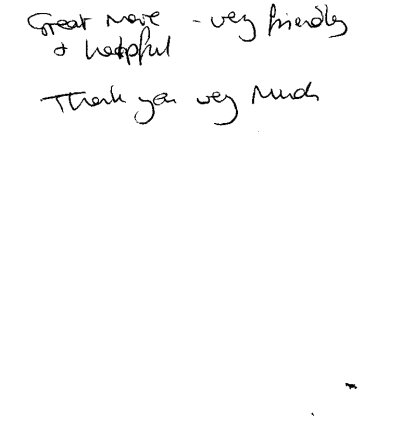 Great move - very friendly
& helpful
Thank you very much